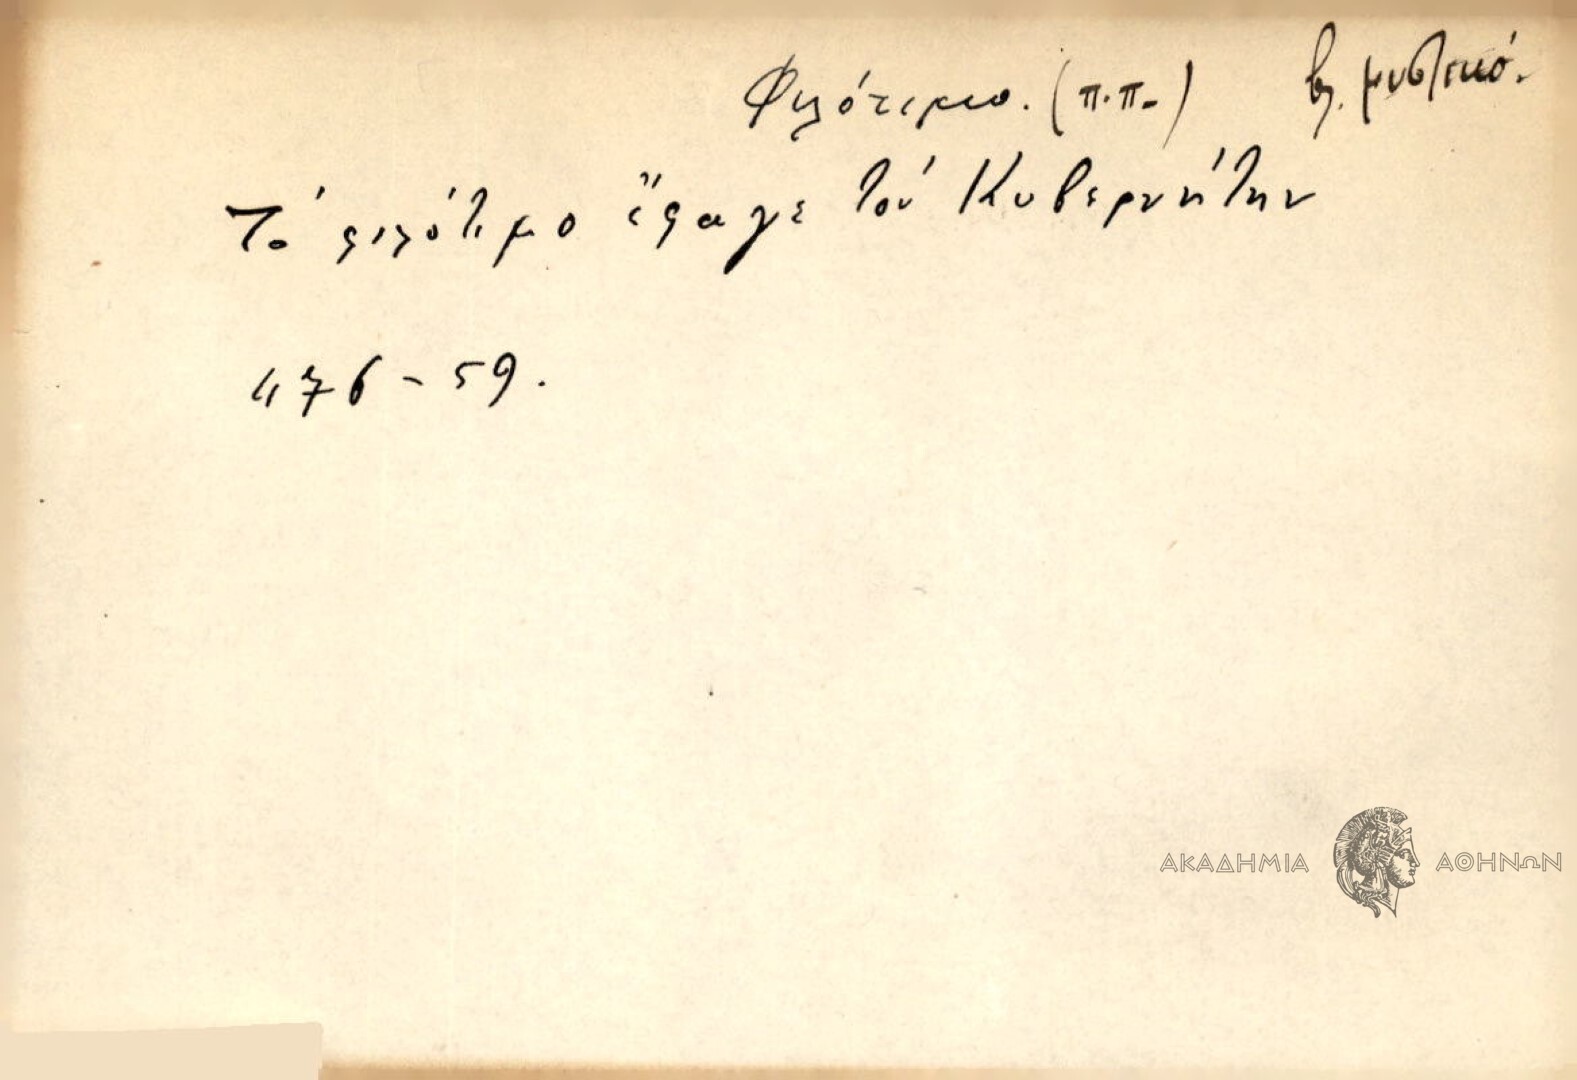 Φιλότιμο. (π.π.) βλ. μυστικό.
Τό φιλότιμο ἔφαγε τόν Κυβερνήτην
476-59.
ΑΚΑΔΗΜΙΑ ΑΘΗΝΩΝ